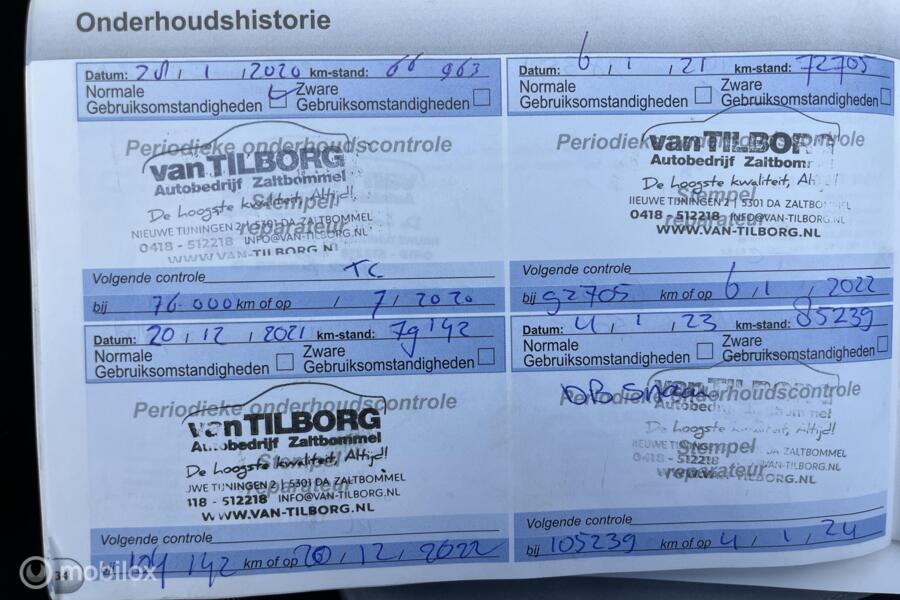 Onderhoudshistorie
Datum: 20/1/2020 km-stand: 66 963
Normale Gebruiksomstandigheden
Zware Gebruiksomstandigheden
Periodieke onderhoudscontrole
vanTILBORG
Autobedrijf Zaltbommel
De hoogste kwaliteit, Altijd!
Stempel reparateur
NIEUWE TIJNINGEN 2 | 5301 DA ZALTBOMMEL
0418 - 512218 INFO@VAN-TILBORG.NL
WWW.VAN-TILBORG.NL
Volgende controle TC
bij 76.000 km of op / 7/2020
Datum: 6/1/21 km-stand: 72705
Normale Gebruiksomstandigheden
Zware Gebruiksomstandigheden
Periodieke onderhoudscontrole
vanTILBOR
Autobedrijf Zaltbomm
De hoogste kwaliteit, Alti
Stempel reparateur
NIEUWE TIJNINGEN 2 | 5301 DA ZALTBO
0418 - 512218 INFO@VAN-TILBORG.NL
WWW.VAN-TILBORG.NL
Volgende controle
bij 92705 km of op 6/1/2022
Datum: 20/12/2021 km-stand: 79142
Normale Gebruiksomstandigheden
Zware Gebruiksomstandigheden
Periodieke onderhoudscontrole
vanTILBORG
Autobedrijf Zaltbommel
De hoogste kwaliteit, Altijd!
Stempel reparateur
UWE TIJNINGEN 2 | 5301 DA ZALTBOMMEL
118 - 512218 INFO@VAN-TILBORG.NL
WWW.VAN-TILBORG.NL
Volgende controle
bij 104142 km of op 20/12/2022
Datum: 4/1/23 km-stand: 85239
Normale Gebruiksomstandigheden
Zware Gebruiksomstandigheden
Periodieke onderhoudscontrole
vanTILBORG
De hoogste kwaliteit, Altijd!
Stempel reparateur
IEUWE TIJNINGEN DA ZALTBOMMEL
0418 - 512218 VAN-TILBORG.NL
Volgende controle
bij 105239 km of op 4/1/24
34
mobilox